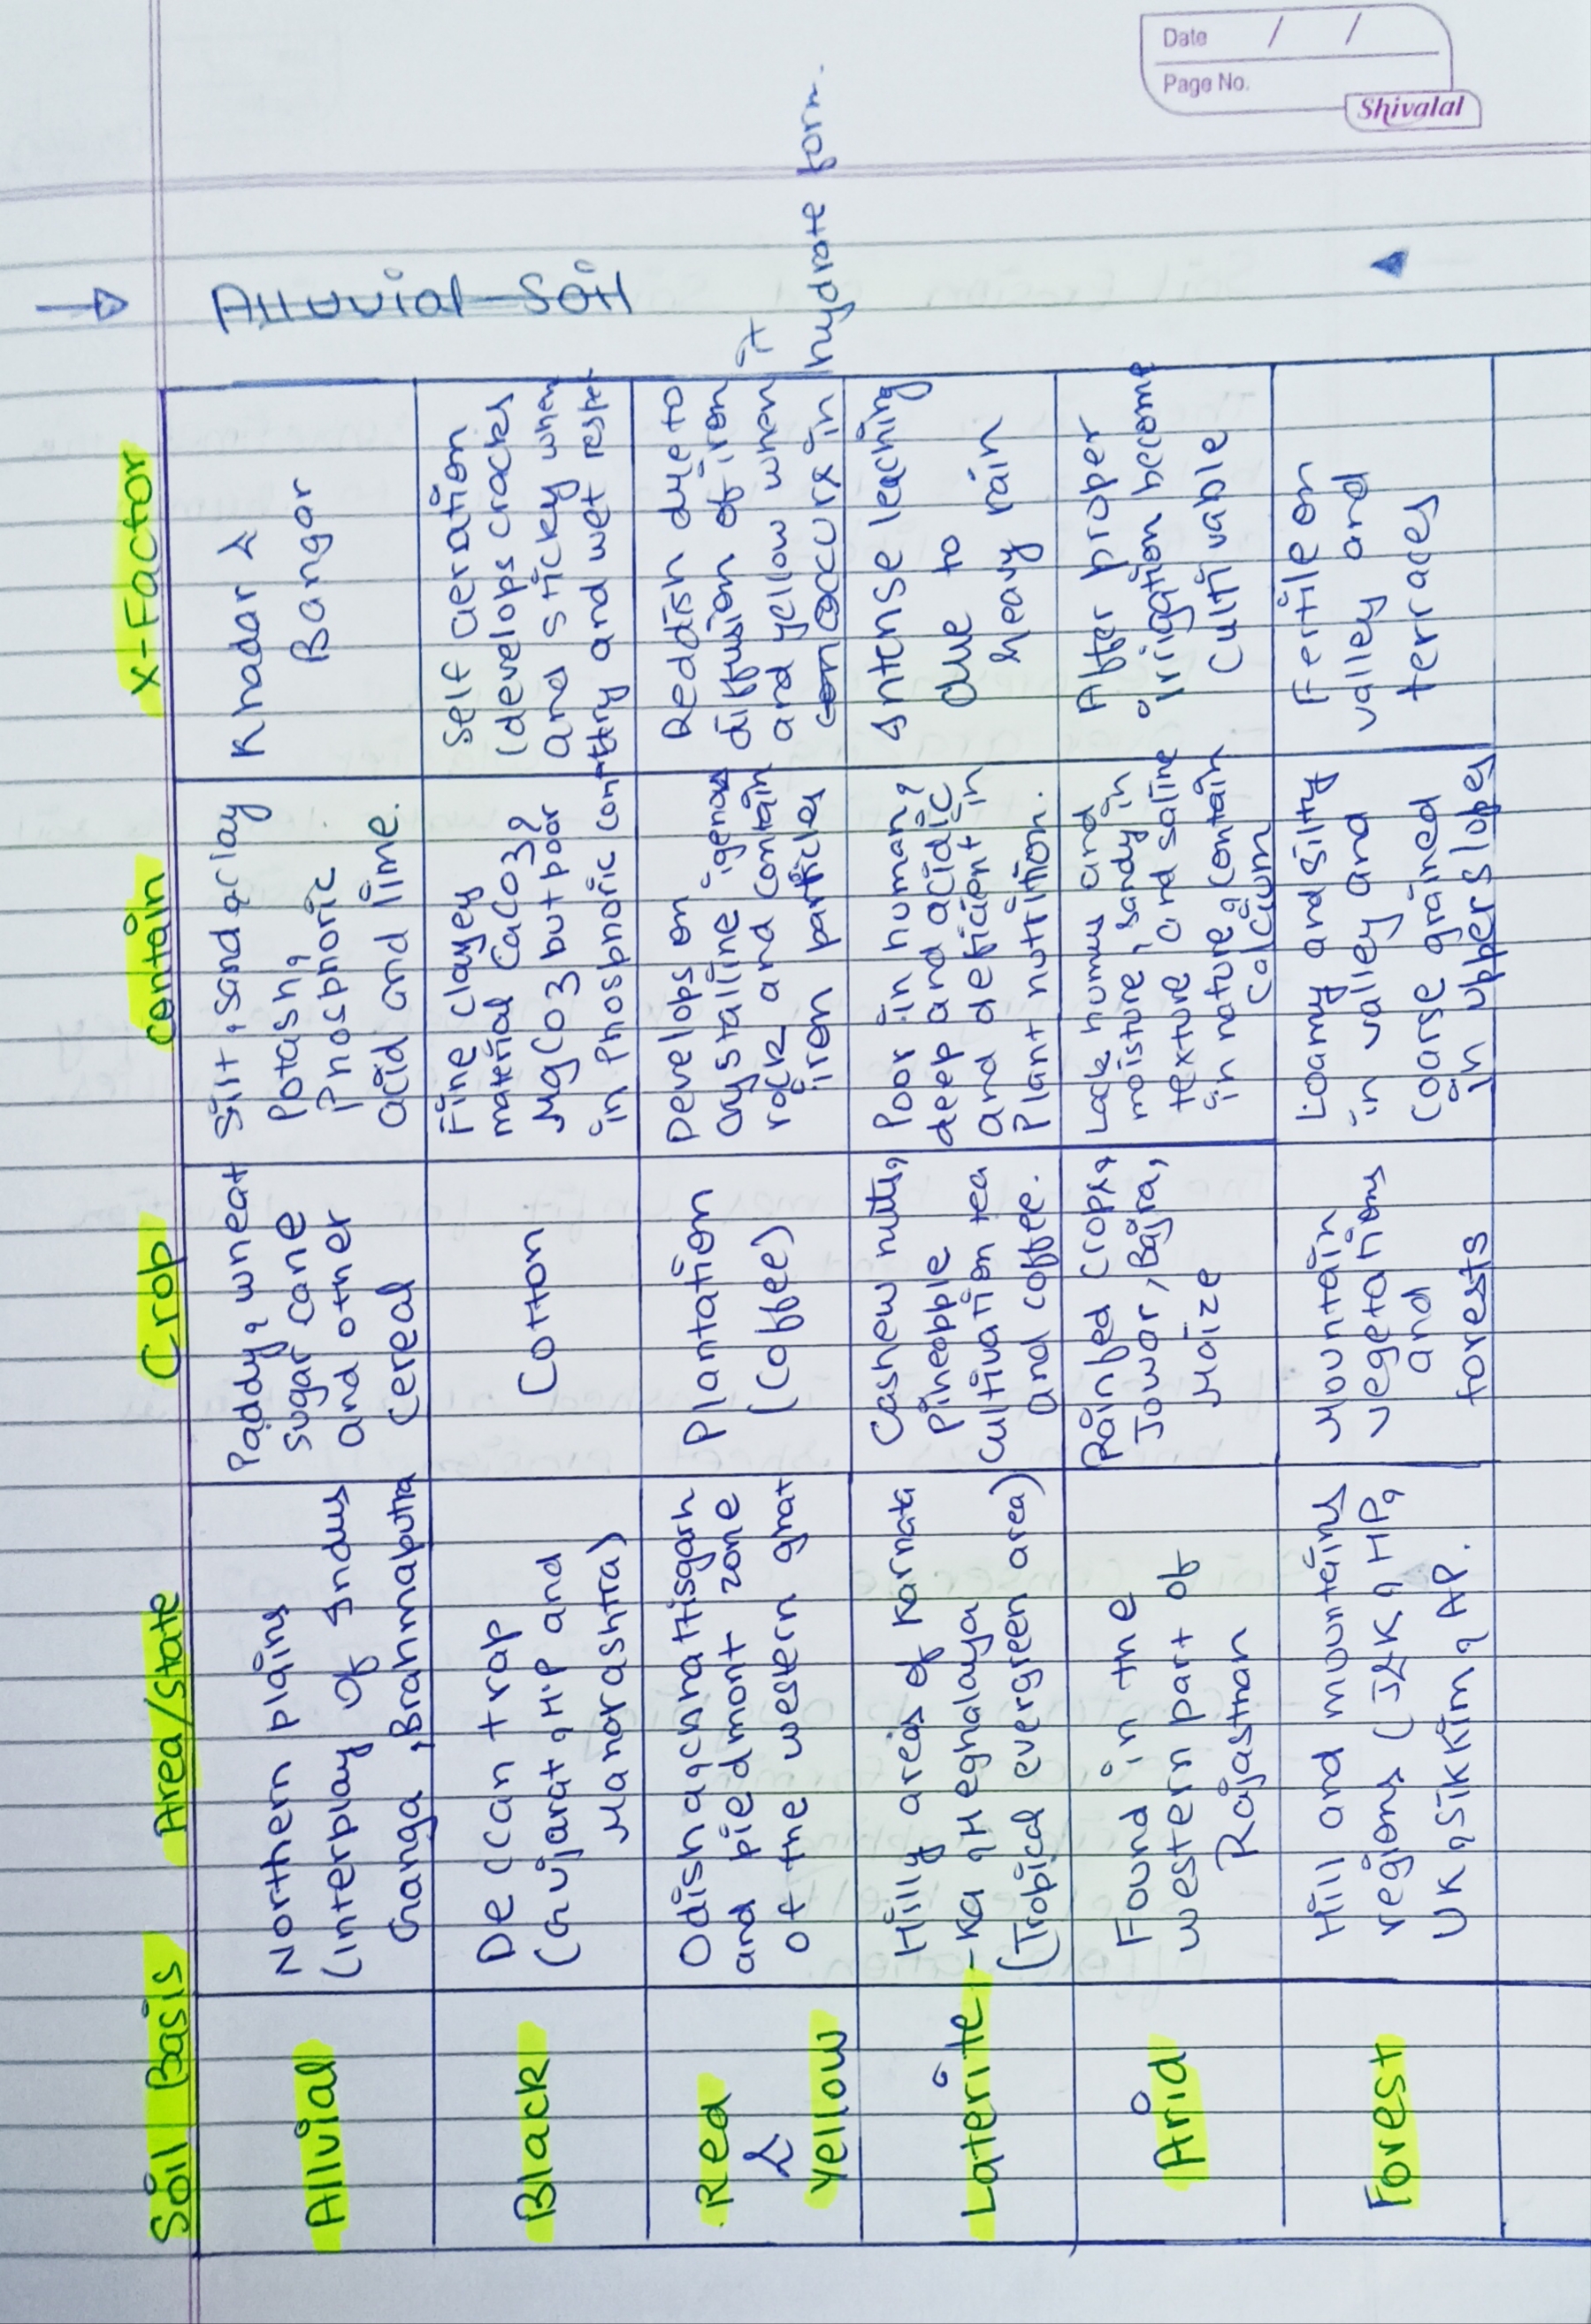 Date / /
Page No.
Shivalal
Soil Basis Area/State Crop contain X-Factor
Alluvial
Northern plains
(interplay of Indus
Ganga, Brahmaputra
Paddy, wheat
sugar cane
and other
cereal
Silt, sand, clay
Potash,
Phosphoric
acid and lime.
Khadar &
Bangar
Black
Deccan trap
(Gujarat, M.P and
Maharashtra)
Cotton
Fine clayey
material CaCO3,
MgCO3 but poor
in Phosphoric cont
Self aeration
(develops cracks
and sticky when
dry and wet rester
Red
&
Yellow
Odisha, chhattisgarh
and piedmont zone
of the western ghat
Plantation
(coffee)
Develops on
crystalline igenous
rock and contain
iron particles
Reddish due to
diffusion of iron
and yellow when it
occurs in hydrate form.
Laterite
Hilly areas of Karnata
-Ka, Meghalaya
(Tropical evergreen area)
Cashew nuts,
Pineapple
cultivation tea
and coffee.
Poor in human,
deep and acidic
and deficient in
Plant nutrition.
Intense leaching
due to
heavy rain
Arid
Found in the
western part of
Rajasthan
Rainfed crops,
Jowar, Bajra,
Maize
Lack humus and
moisture, sandy in
texture and saline
in nature, contain
calcium
After proper
irrigation become
cultivable
Forest
Hill and mountains
regions (J&K, HP,
UK, Sikkim, AP.
Mountain
vegetations
and
forests
Loamy and silty
in valley and
coarse grained
in upper slopes
Fertile on
valley and
terraces
→ Alluvial Soil